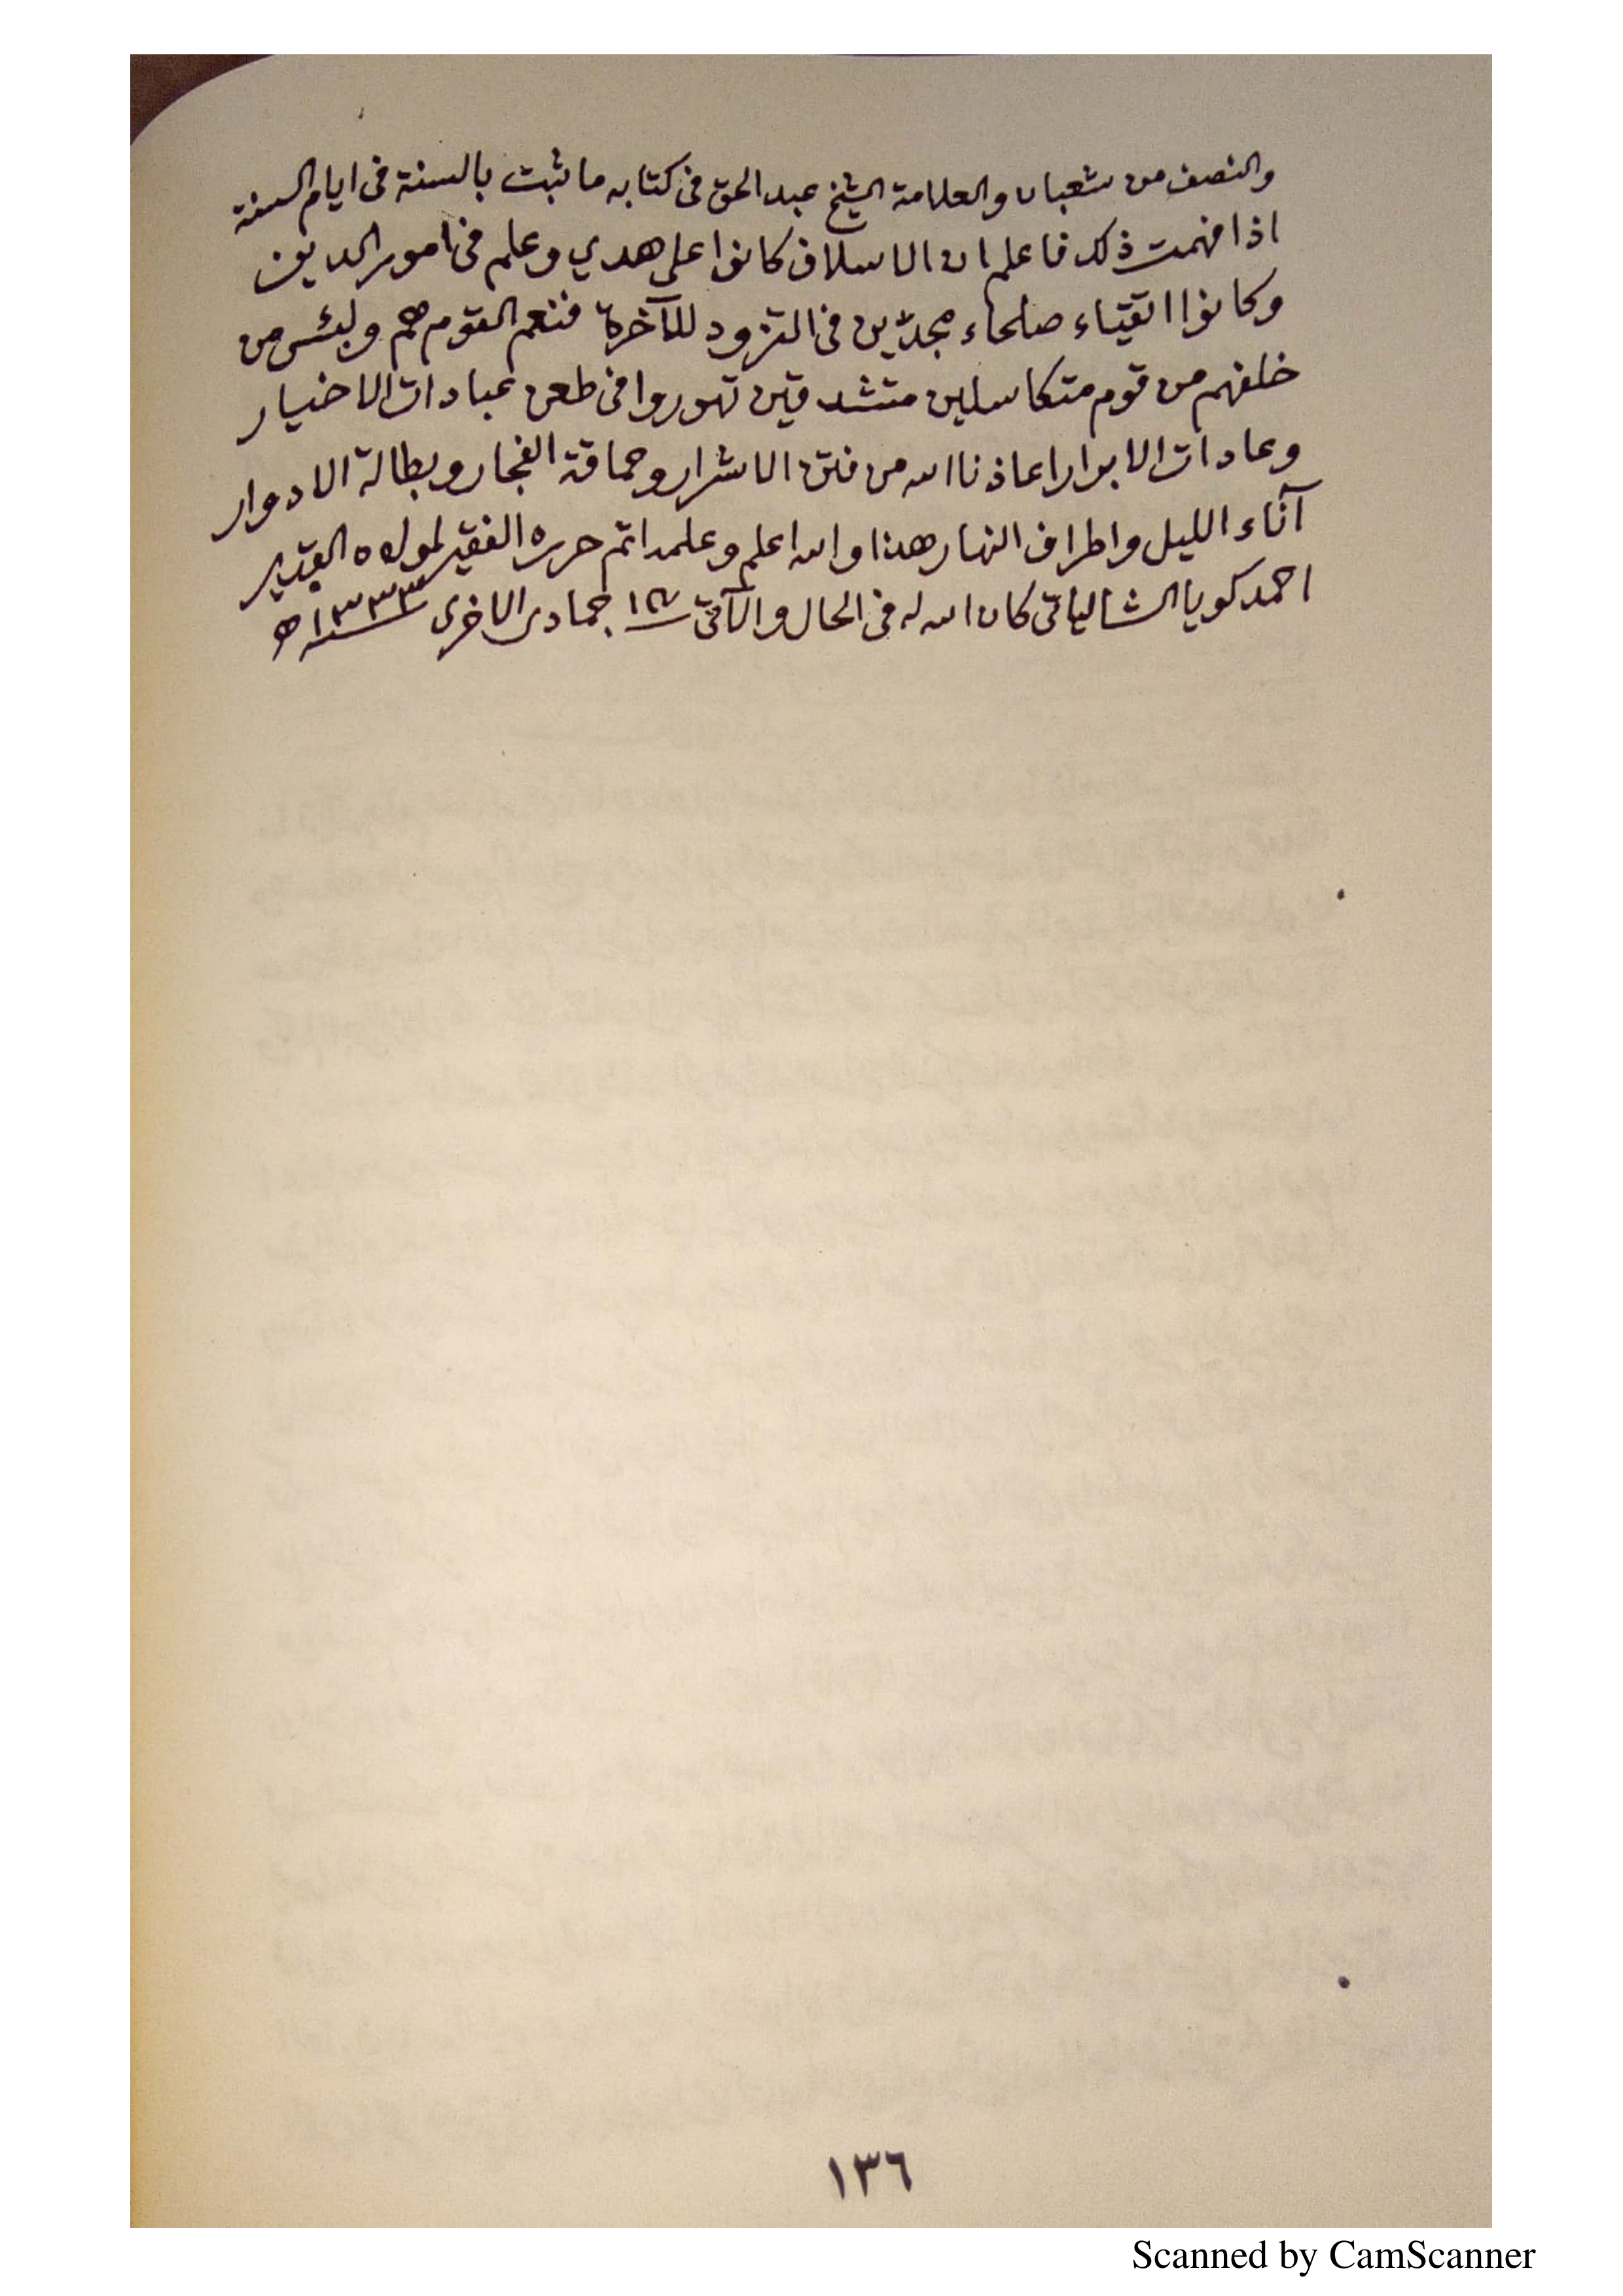 والنصف من شعبان والعلامة الشيخ عبد الحق فى كتابه ما ثبت بالسنة فى ايام السنة
اذا فهمت ذلك فاعلم ان الاسلاف كانوا على هدي وعلم فى امور الدين
وكانوا اتقياء صلحاء مجدّين فى التزود للآخرة فنعم القوم هم ولبئس من
خلفهم من قوم متكاسلين متشدقين تهوروا فى طعن عبادات الاخيار
وعادات الابرار اعاذنا الله من فتن الاشرار وحماقة الفجار وبطالة الادوار
آناء الليل واطراف النهار هذا والله اعلم وعلمه اتم حرره الفقير لمولاه القدير
احمد كويا الشالياتى كان الله له فى الحال والآتى جمادى الاخرى سنه ١٣٣٣ ھ
١٣٦
Scanned by CamScanner